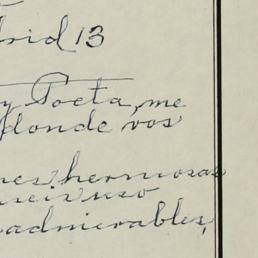 drid 13
y Poeta, me
donde vos
nes, hermosas
admirables,